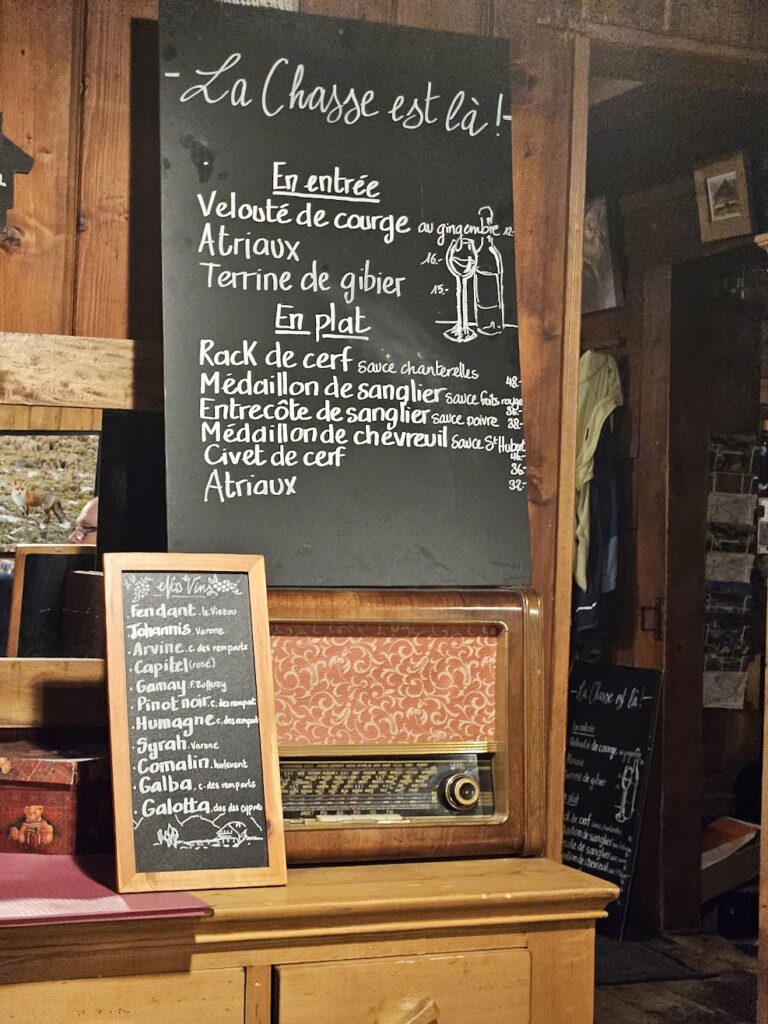 - La Chasse est là !-
En entrée
Velouté de courge au gingembre 12.-
Atriaux 16.-
Terrine de gibier 15.-
En plat
Rack de cerf sauce chanterelles 48.-
Médaillon de sanglier sauce fruits rouge
Entrecôte de sanglier sauce poivre 38.-
Médaillon de chevreuil sauce St Hubert
46.-
Civet de cerf 36.-
Atriaux 32.-
Nos Vins
. Fendant. le Viezou
Johannis. Varone
. Arvine. c. des remparts
. Capitel (rosé)
. Gamay. F. Zufferey
. Pinot noir. c. des rempart
. Humagne c. des rempart
. Syrah. Varone
. Comalin. hurlevent
. Galba. c. des remparts
. Galotta. clos des cyprès
- La Chasse est là !-
En entrée
Velouté de courge au gingembre
Atriaux
Terrine de gibier
plat
de cerf sauce chanterelles
de sanglier
de sanglier
de chevreuil
de cerf